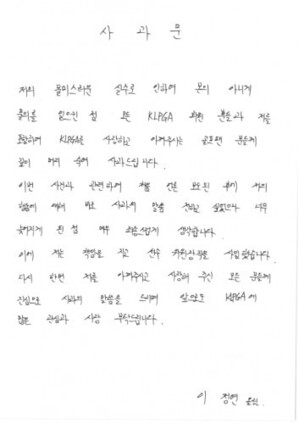 사 과 문
저의 불미스러운 실수로 인하여 본의 아니게
물의를 일으킨 점 모든 KLPGA 회원 분들과 저를
포함하여 KLPGA를 사랑하고 아껴주시는 골프팬 분들께
깊이 머리 숙여 사과드립니다.
이번 사건과 관련하여 처음 언론 보도된 후에 저의
잘못에 대해 바로 사과의 말씀 전하고 싶었으나 너무
늦어지게 된 점 매우 죄송스럽게 생각합니다.
이에 저는 책임을 지고 선수 위원장직을 사임했습니다.
다시 한번 저를 아껴주시고 사랑해 주신 모든 분들께
진심으로 사과의 말씀을 드리며 앞으로도 KLPGA에
많은 관심과 사랑 부탁드립니다.
이 정연